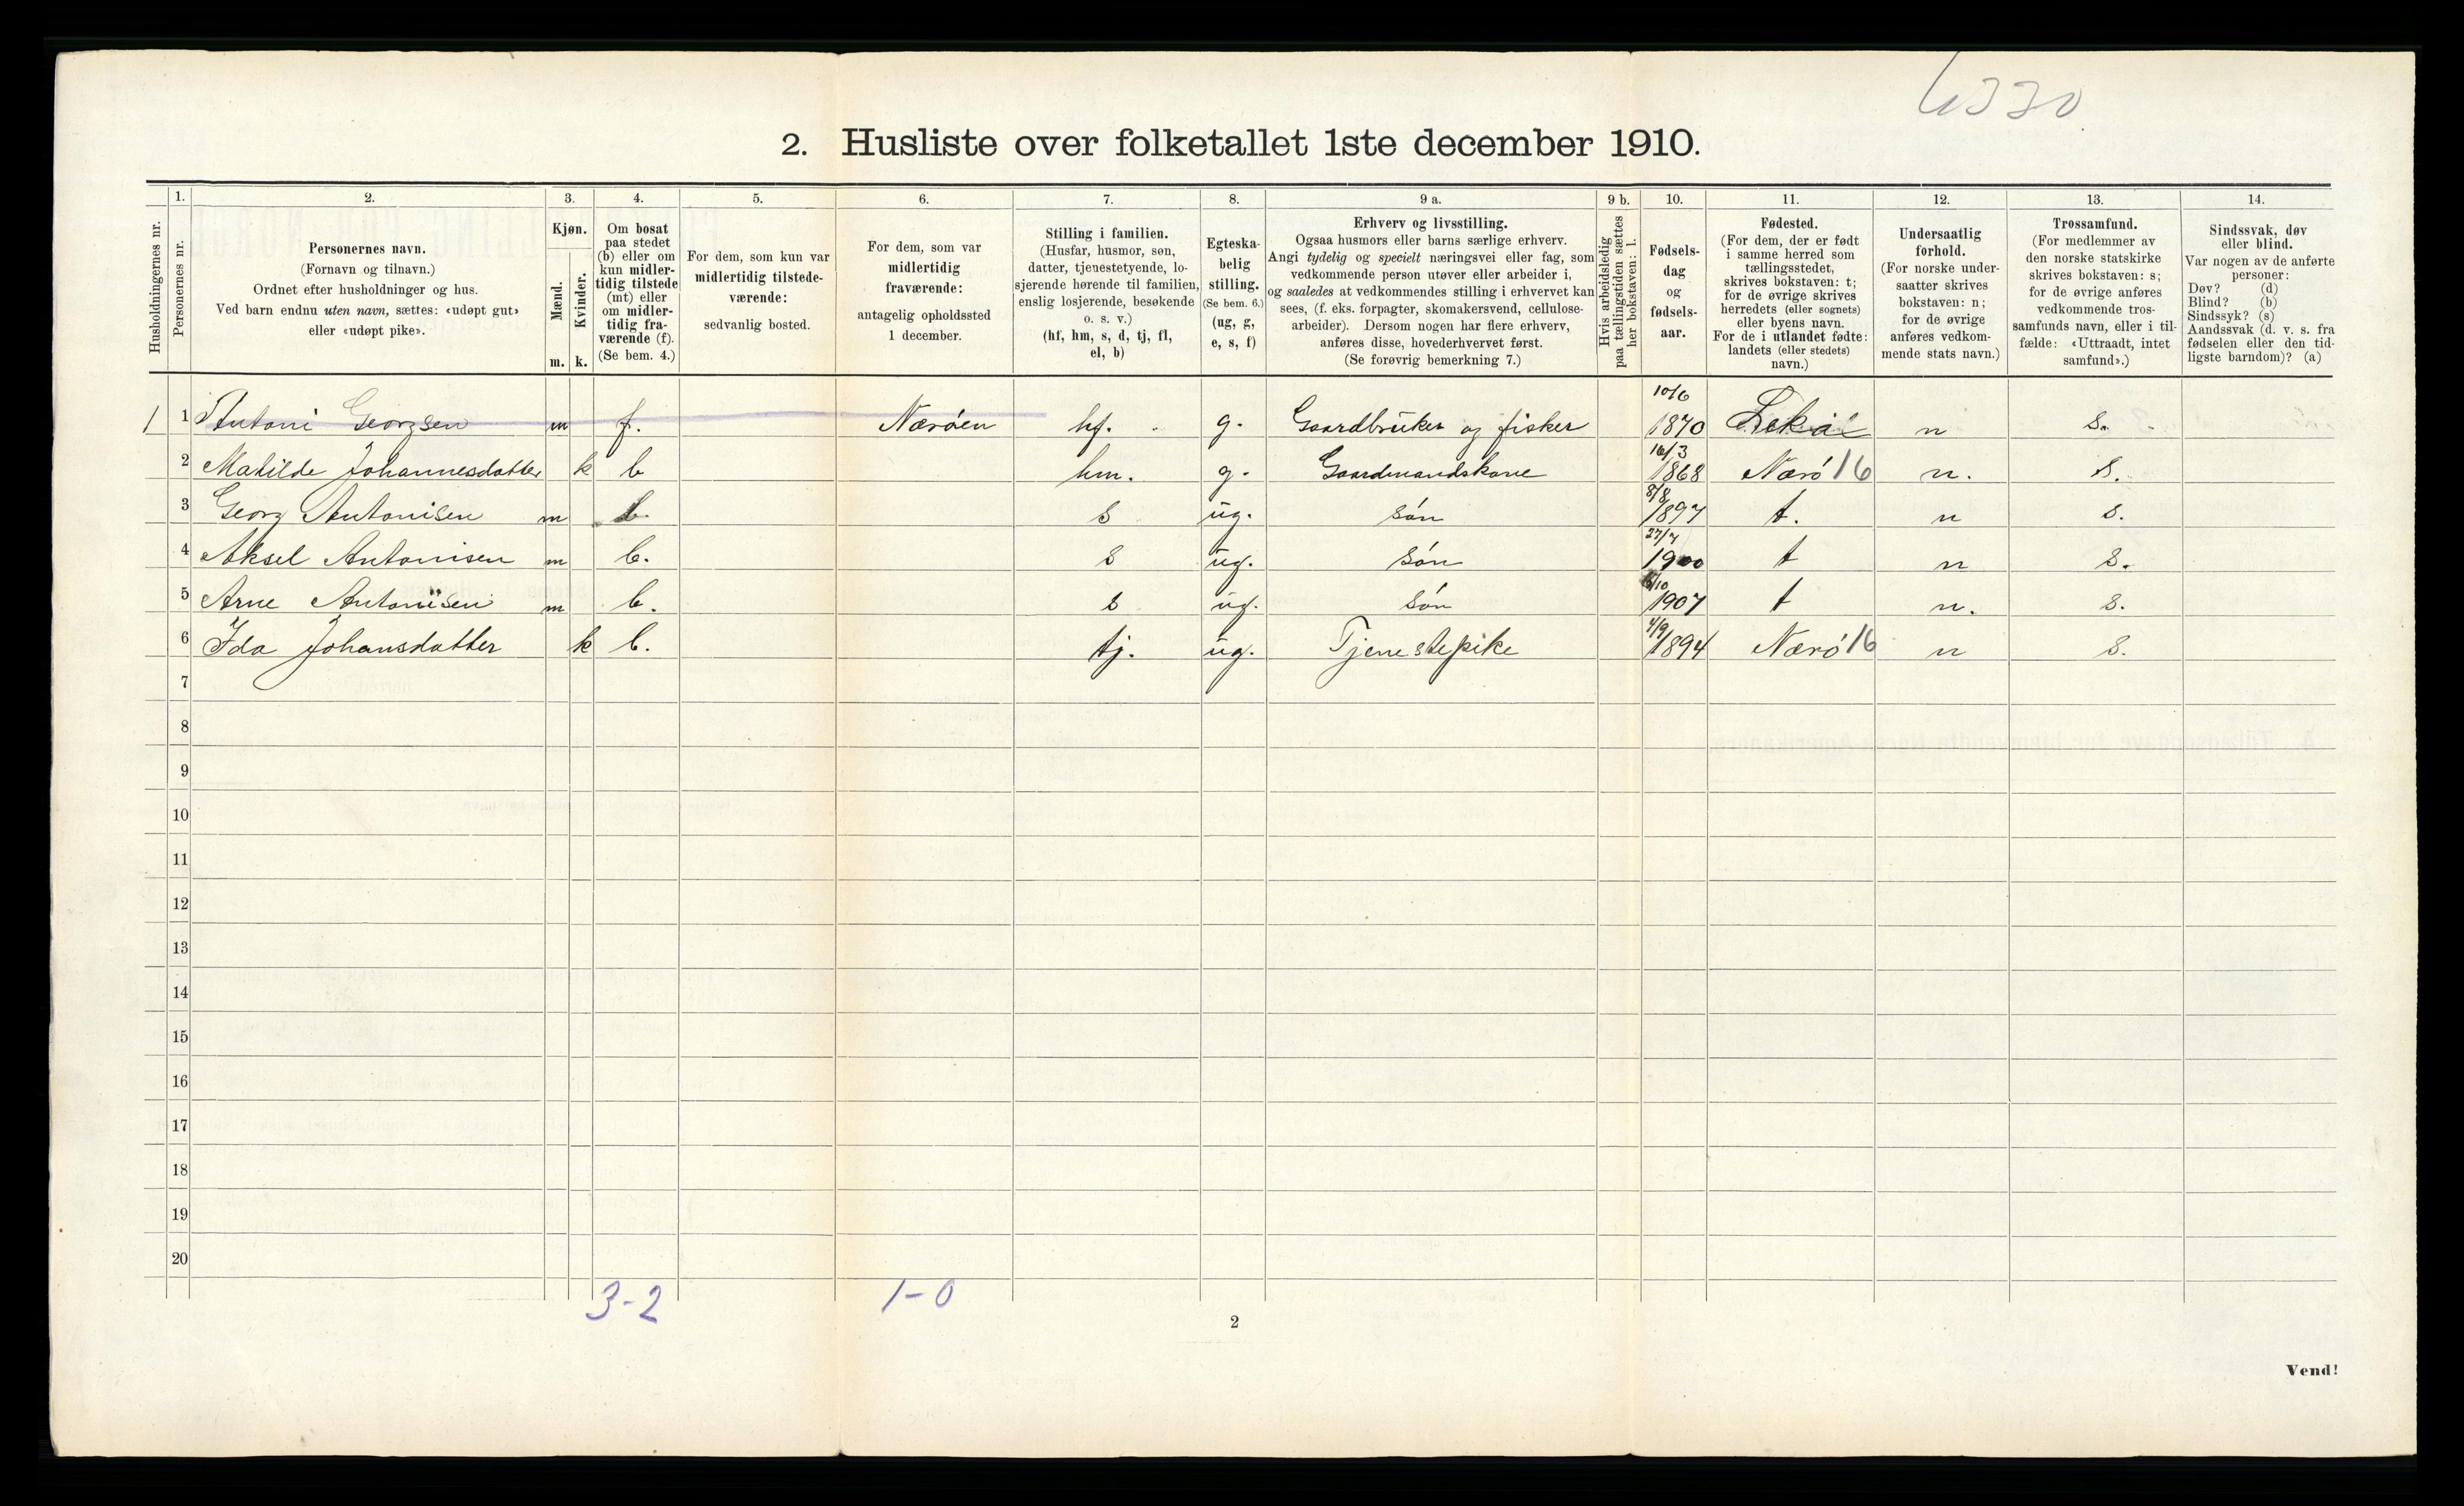 6330
2. Husliste over folketallet 1ste december 1910.
Husholdningernes nr.
1.
Personernes nr.
2.
Personernes navn.
(Fornavn og tilnavn.)
Ordnet efter husholdninger og hus.
Ved barn endnu uten navn, sættes: «udøpt gut»
eller «udøpt pike».
3.
Kjøn.
Mænd.
Kvinder.
m. k.
4.
Om bosat
paa stedet
(b) eller om
kun midler-
tidig tilstede
(mt) eller
om midler-
tidig fra-
værende (f).
(Se bem. 4.)
5.
For dem, som kun var
midlertidig tilstede-
værende:
sedvanlig bosted.
6.
For dem, som var
midlertidig
fraværende:
antagelig opholdssted
1 december.
7.
Stilling i familien.
(Husfar, husmor, søn,
datter, tjenestetyende, lo-
sjerende hørende til familien,
enslig losjerende, besøkende
o. s. v.)
(hf, hm, s, d, tj, fl,
el, b)
8.
Egteska-
belig
stilling.
(Se bem. 6.)
(ug, g,
e, s, f)
9 a.
Erhverv og livsstilling.
Ogsaa husmors eller barns særlige erhverv.
Angi tydelig og specielt næringsvei eller fag, som
vedkommende person utøver eller arbeider i,
og saaledes at vedkommendes stilling i erhvervet kan
sees, (f. eks. forpagter, skomakersvend, cellulose-
arbeider). Dersom nogen har flere erhverv,
anføres disse, hovederhvervet først.
(Se forøvrig bemerkning 7.)
9 b.
Hvis arbeidsledig
paa tællingstiden sættes
her bokstaven: l.
10.
Fødsels-
dag
og
fødsels-
aar.
11.
Fødested.
(For dem, der er født
i samme herred som
tællingsstedet,
skrives bokstaven: t;
for de øvrige skrives
herredets (eller sognets)
eller byens navn.
For de i utlandet fødte:
landets (eller stedets)
navn.)
12.
Undersaatlig
forhold.
(For norske under-
saatter skrives
bokstaven: n;
for de øvrige
anføres vedkom-
mende stats navn.)
13.
Trossamfund.
(For medlemmer av
den norske statskirke
skrives bokstaven: s;
for de øvrige anføres
vedkommende tros-
samfunds navn, eller i til-
fælde: «Uttraadt, intet
samfund».)
14.
Sindssvak, døv
eller blind.
Var nogen av de anførte
personer:
Døv? (d)
Blind? (b)
Sindssyk? (s)
Aandssvak (d. v. s. fra
fødselen eller den tid-
ligste barndom)? (a)
1 1 Antoni Georgsen m f. Nærøen hf. g. Gaardbruker og fisker 10/6 1870 n s.
2 Matilde Johannesdatter k b hm. g. Gaardmandskone 16/3 1868 Nærö 16 n. s.
3 Georg Antonisen m b. s ug. sön 8/8 1897 t. n s.
4 Aksel Antonisen m b. s ug. sön 27/7 1900 t n s.
5 Arne Antonisen m b. s ug. sön 1907 t n. s.
6 Ida Johansdatter k b. tj. ug. Tjenestepike 4/9 1894 Nærö 16 n s.
7
8
9
10
11
12
13
14
15
16
17
18
19
20
3-2 1-0
2
Vend!